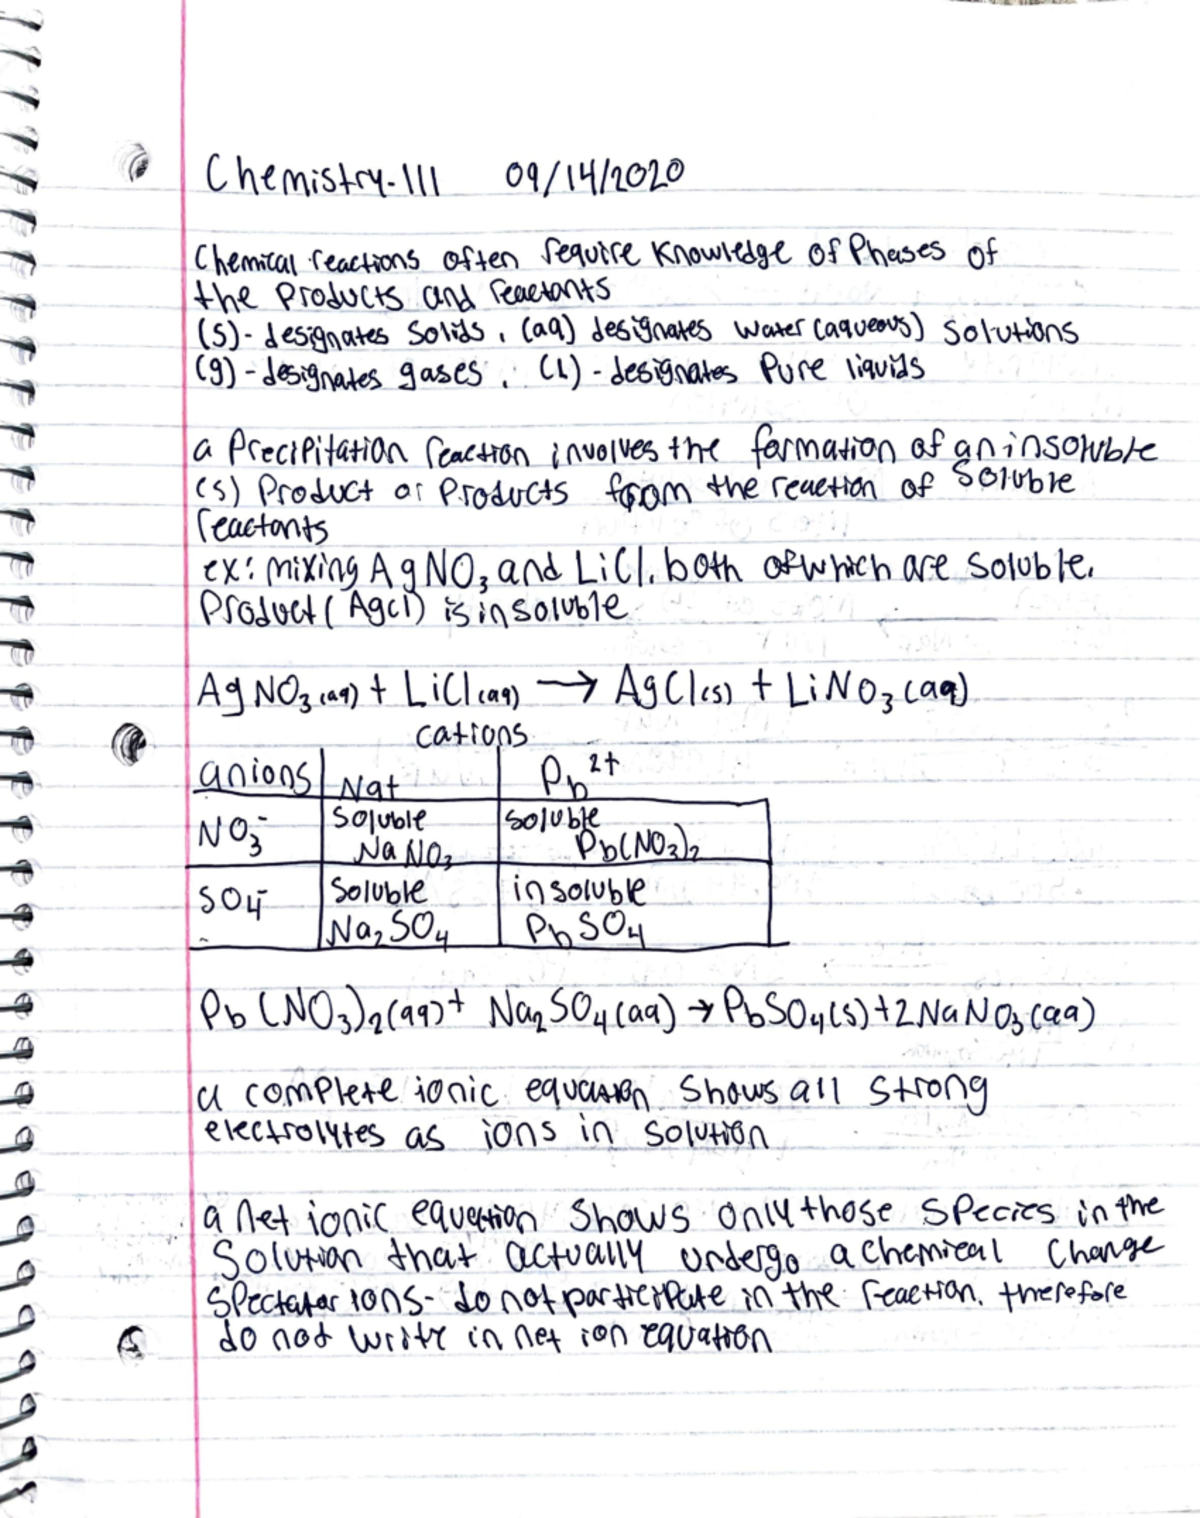 Chemistry-111 09/14/2020
Chemical reactions often require knowledge of Phases of
the Products and reactants
(s)- designates Solids, (aq) designates water (aqueous) solutions
(g)-designates gases, (L)-designates Pure liquids
a Precipitation reaction involves the formation of an insoluble
(s) Product or Products from the reaction of soluble
reactants
ex: mixing AgNO₃ and LiCl, both of which are soluble.
Product (AgCl) is insoluble
AgNO₃(aq) + LiCl(aq) → AgCl(s) + LiNO₃(aq)
cations
anions Na+ Pb²⁺
NO₃⁻ Soluble NaNO₃ soluble Pb(NO₃)₂
SO₄⁻ Soluble Na₂SO₄ insoluble PbSO₄
Pb(NO₃)₂(aq)+ Na₂SO₄(aq) → PbSO₄(s)+2NaNO₃(aq)
a complete ionic equation shows all strong
electrolytes as ions in solution
a net ionic equation shows only those species in the
Solution that actually undergo a chemical change
Spectator ions- do not participate in the reaction, therefore
do not write in net ion equation